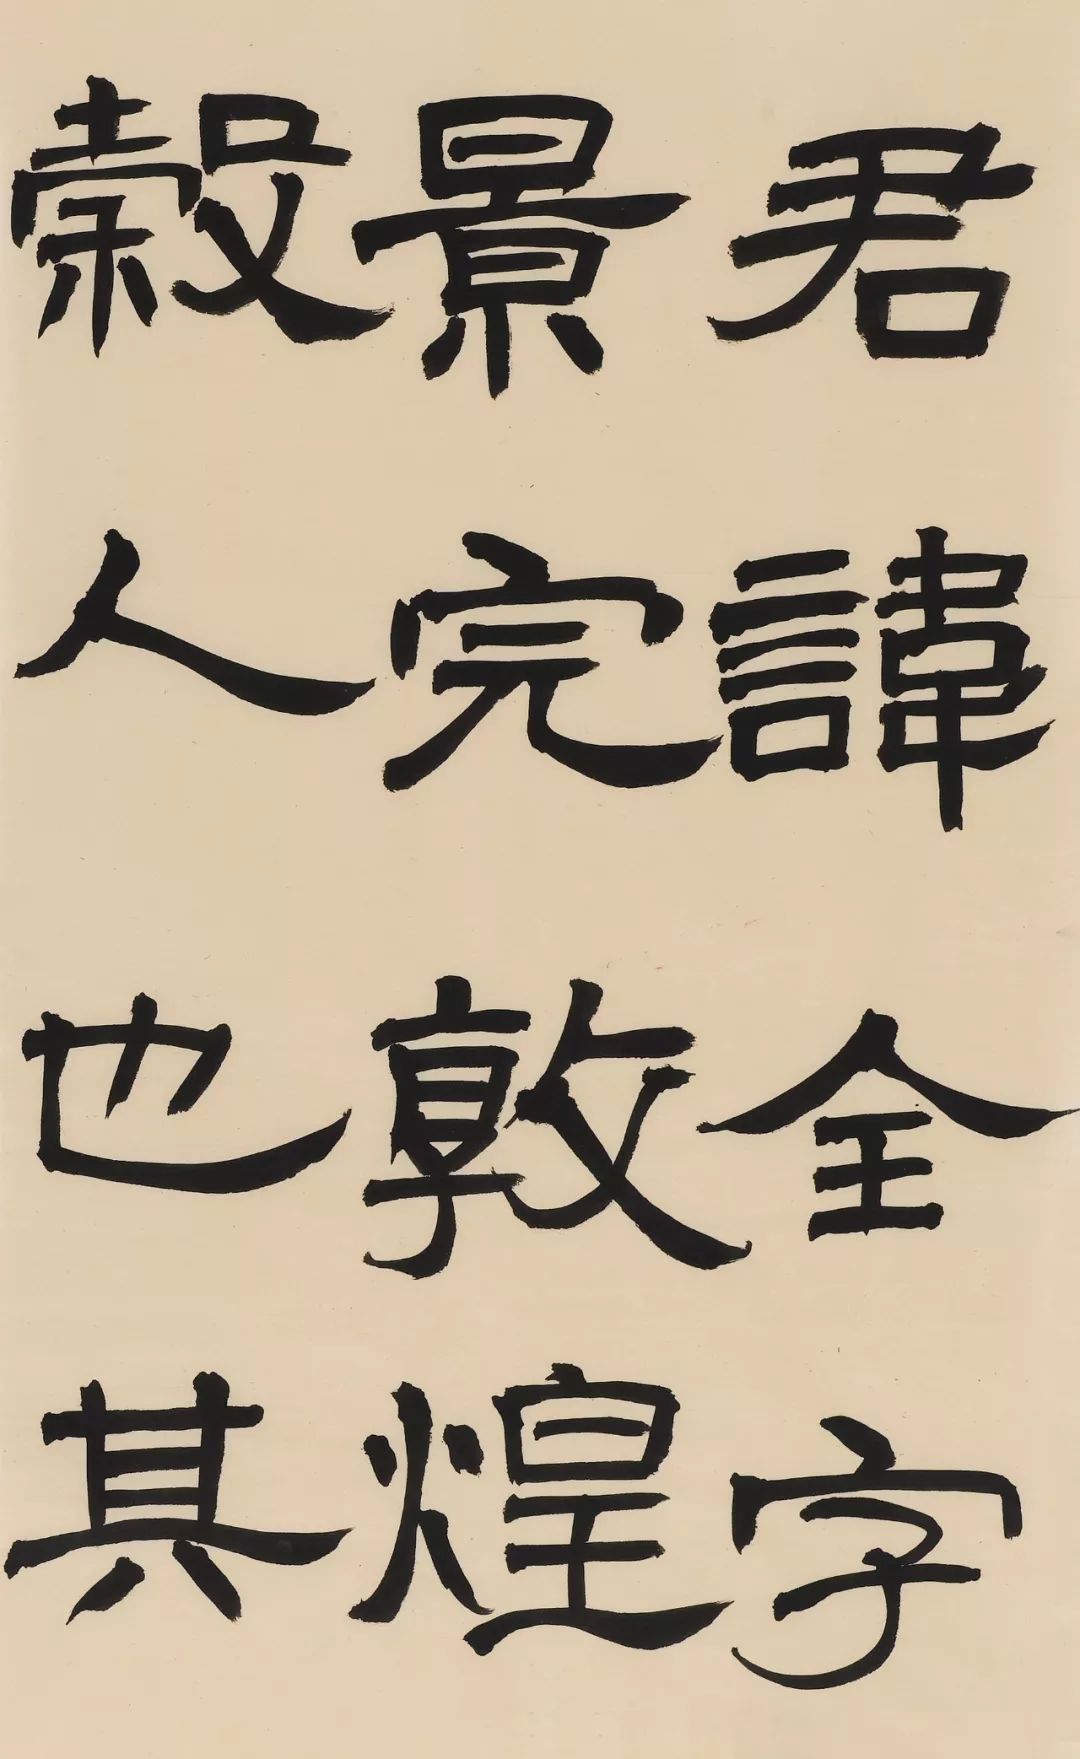 君諱全字
景完敦煌
榖人也其